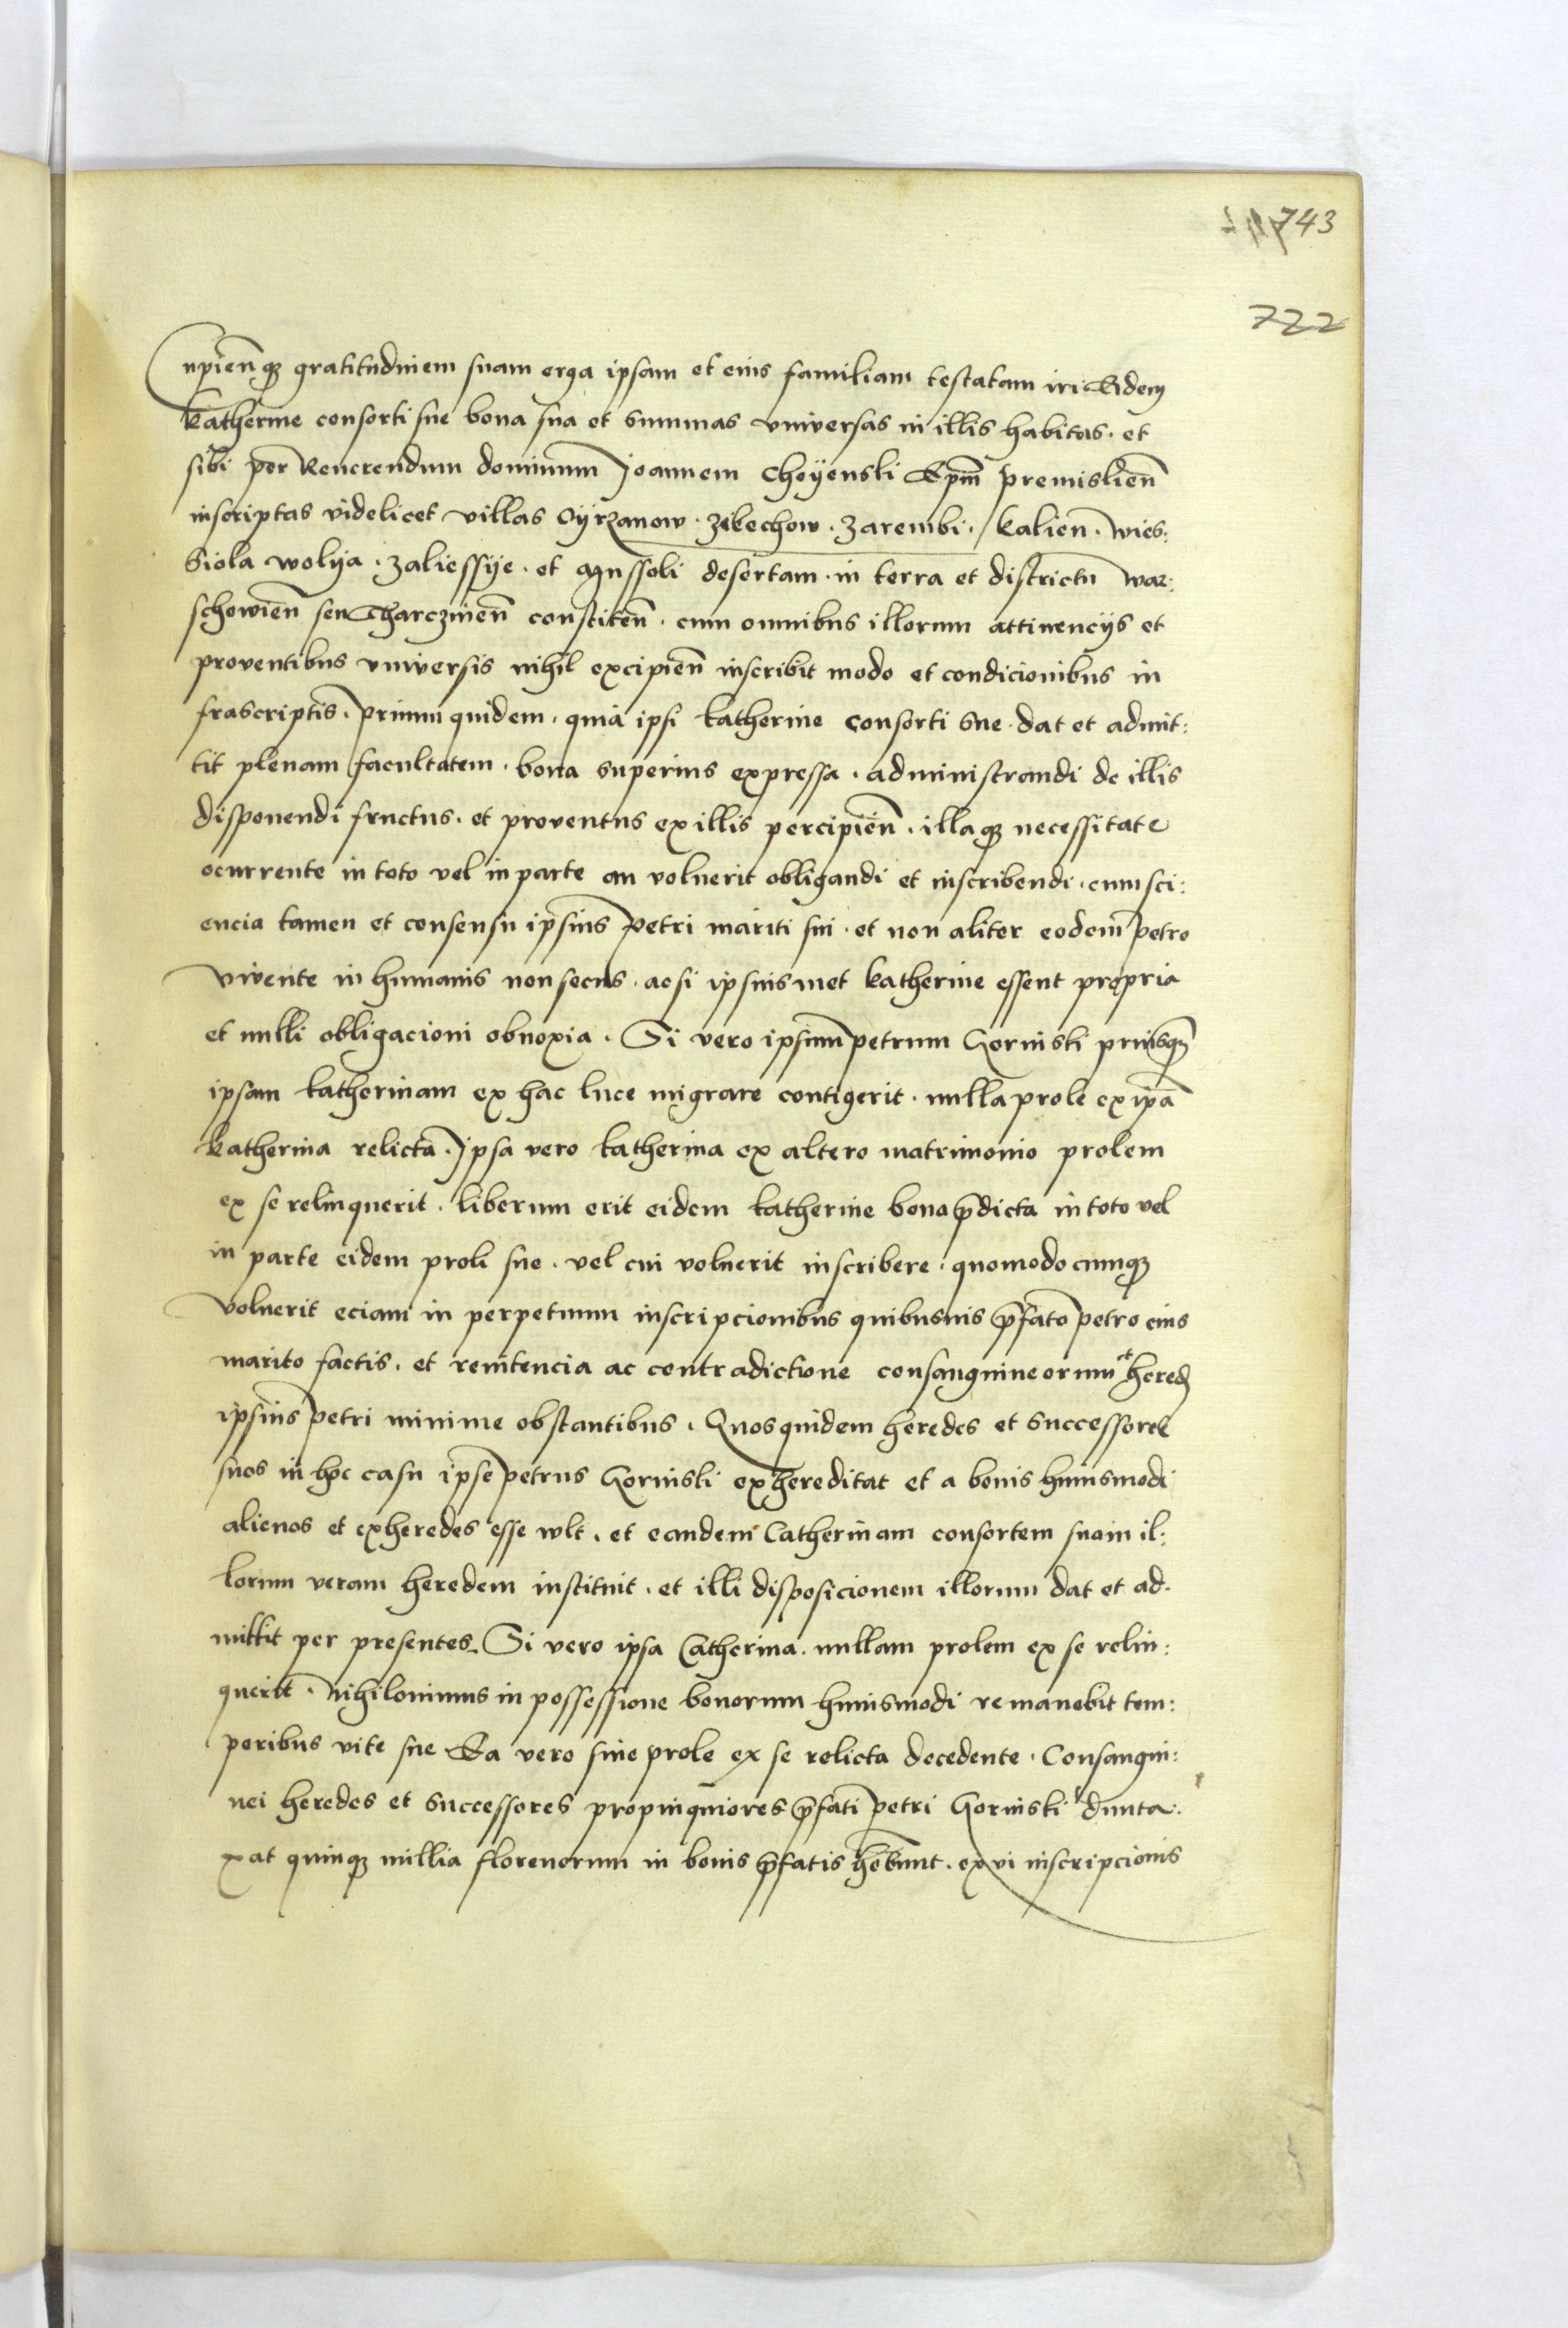 743
722
Cupienq̃ gratitudinem suam erga ipsam et eius familiam testatam iri Eidem
Katherine consorti sue bona sua et summas universas in illis habitas . et
sibi per Reuerendum dominum Joannem Choyenski Ep̃m premislień
inscriptas videlicet villas Oyrzanow . Zelechow . Zarembi . Kalień . wies :
Siola wolya . Zaliessye . et Mussoli desertam . in terra et districtu war :
schowień seu Tharczinień constiteń . cum omnibus illorum attinencijs et
proventibus vniversis nihil excipień inscribit modo et condicionibus in
frascriptis . primum quidem . quia ipsi katherine consorti sue . dat et admit :
tit plenam facultatem . bona superius expressa . administrandi de illis
disponendi fructus . et proventus ex illis percipień . illaq̃ necessitate
ocurrente in toto vel in parte an voluerit obligandi et inscribendi . cum sci :
encia tamen et consensu ipsius petri mariti sui . et non aliter eodem petro
vivente in humanis non secus . ac si ipsius met katherine essent propria
et nulli obligacioni obnoxia . Si vero ipsum petrum Gorinski priusq̃
ipsam katherinam ex hac luce migrare contigerit . nulla prole ex ip̃a
Katherina relicta . Ipsa vero katherina ex altero matrimonio prolem
ex se relinquerit . liberum erit eidem katherine bona p̃dicta in toto vel
in parte eidem proli sue . vel cui voluerit inscribere . quomodocumq̃
voluerit eciam in perpetuum inscripcionibus quibusuis p̃fato petro eius
marito factis . et renitencia ac contradictione consanguineorum et hered̃
ipsius petri minime obstantibus . Quos quidem heredes et successores
suos in hoc casu ipse petrus Gorinski exhereditat et a bonis huiusmodi
alienos et exheredes esse wlt . et eandem Catherinam consortem suam il :
lorum veram heredem instituit . et illi disposicionem illorum dat et ad .
mittit per presentes . Si vero ipsa Catherina . nullam prolem ex se relin :
querit . nihilominus in possessione bonorum huiusmodi remanebit tem :
poribus vite sue Ea vero sine prole ex se relicta decedente . Consangui :
nei heredes et successores propinquiores p̃fati petri Gorinski dunta .
xat quinq̃ millia florenorum in bonis p̃fatis hẽbunt . ex vi inscripcionis